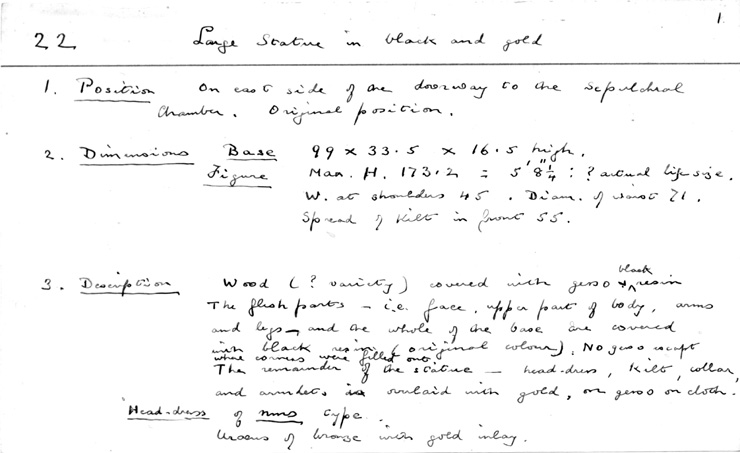 1.
22 Large Statue in black and gold
1. Position On east side of the doorway to the sepulchral
Chamber. Original position.
2. Dimensions Base 99 x 33.5 x 16.5 high.
Figure Max. H. 173.2 = 5' 8 1/4" : ? actual life size.
W. at shoulders 45. Diam. of waist 21.
Spread of kilt in front 55.
3. Description Wood (? variety) covered with gesso + black resin
The flesh parts - i.e. face, upper part of body, arms
and legs - and the whole of the base are covered
with black resin (original colour). No gesso except
where corners were filled out.
The remainder of the statue - head-dress, kilt, collar,
and armlets is overlaid with gold, on gesso on cloth.
Head-dress of nms type.
Uraeus of bronze with gold inlay.